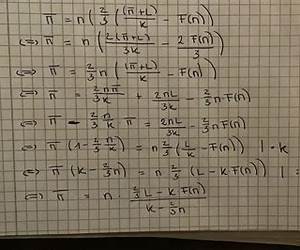 π̄ = n(2/3((π̄+L)/k - F(n)))
⇔ π̄ = n(2(π̄+L)/3k - 2F(n)/3)
⇔ π̄ = 2/3 n((π̄+L)/k - F(n))
⇔ π̄ = 2nπ̄/3k + 2nL/3k - 2/3 n·F(n)
⇔ π̄ - 2/3 n/k π̄ = 2nL/3k - 2/3 n F(n)
⇔ π̄ (1 - 2/3 n/k) = n 2/3 (L/k - F(n)) | · k
⇔ π̄ (k - 2/3 n) = n 2/3 (L - k F(n)) | :
⇔ π̄ = n · (2/3 L - k F(n))/(k - 2/3 n)